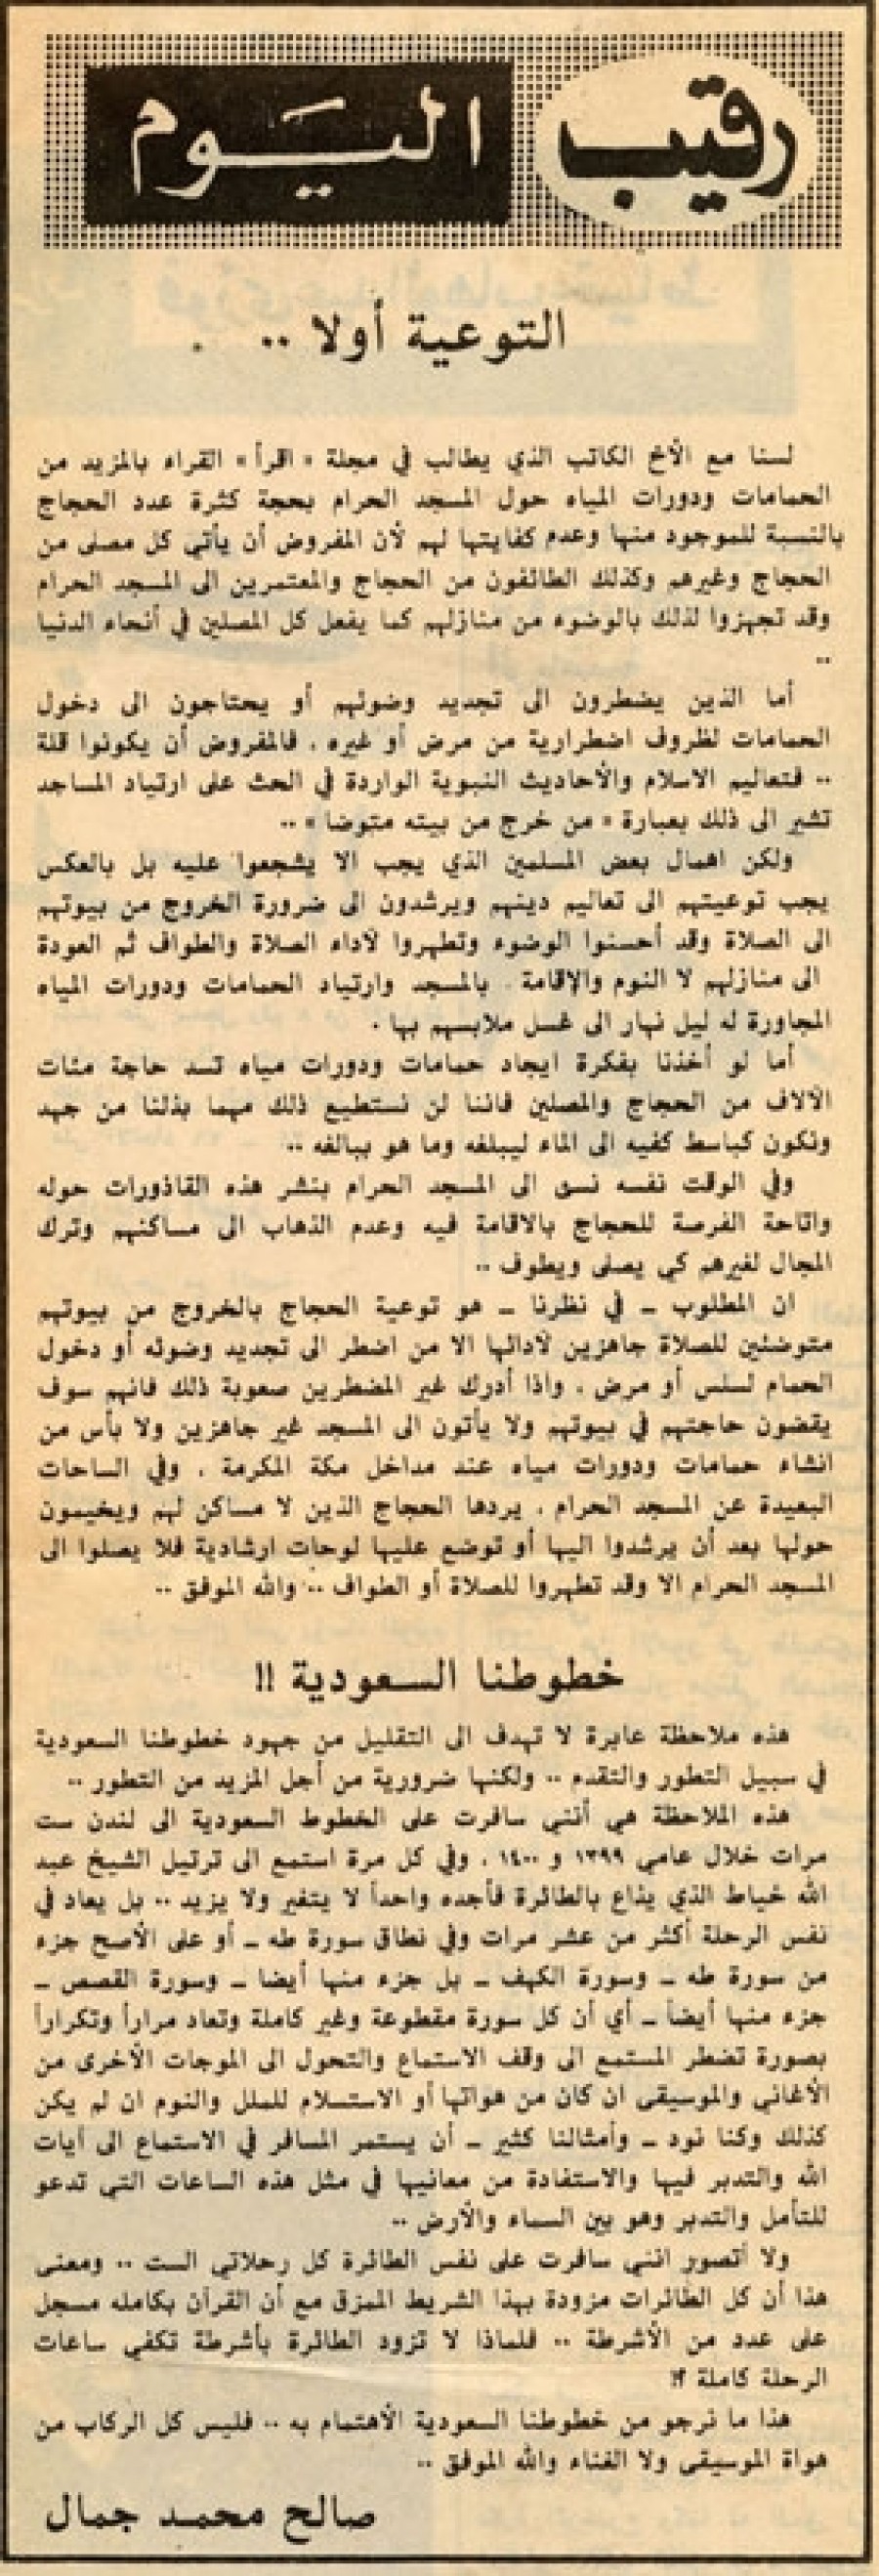 رقيب اليوم
التوعية أولا ..
لسنا مع الأخ الكاتب الذي يطالب في مجلة « اقرأ » القراء بالمزيد من
الحمامات ودورات المياه حول المسجد الحرام بحجة كثرة عدد الحجاج
بالنسبة للموجود منها وعدم كفايتها لهم لأن المفروض أن يأتي كل مصلى من
الحجاج وغيرهم وكذلك الطائفون من الحجاج والمعتمرين الى المسجد الحرام
وقد تجهزوا لذلك بالوضوء من منازلهم كما يفعل كل المصلين في أنحاء الدنيا
..
أما الذين يضطرون الى تجديد وضوئهم أو يحتاجون الى دخول
الحمامات لظروف اضطرارية من مرض أو غيره . فالمفروض أن يكونوا قلة
.. فتعاليم الاسلام والأحاديث النبوية الواردة في الحث على ارتياد المساجد
تشير الى ذلك بعبارة « من خرج من بيته متوضا » ..
ولكن اهمال بعض المسلمين الذي يجب الا يشجعوا عليه بل بالعكس
يجب توعيتهم الى تعاليم دينهم ويرشدون الى ضرورة الخروج من بيوتهم
الى الصلاة وقد أحسنوا الوضوء وتطهروا لأداء الصلاة والطواف ثم العودة
الى منازلهم لا النوم والإقامة . بالمسجد وارتياد الحمامات ودورات المياه
المجاورة له ليل نهار الى غسل ملابسهم بها .
أما لو أخذنا بفكرة ايجاد حمامات ودورات مياه تسد حاجة مئات
الآلاف من الحجاج والمصلين فاننا لن نستطيع ذلك مهما بذلنا من جهد
ونكون كباسط كفيه الى الماء ليبلغه وما هو ببالغه ..
وفي الوقت نفسه نسئ الى المسجد الحرام بنشر هذه القاذورات حوله
واتاحة الفرصة للحجاج بالاقامة فيه وعدم الذهاب الى مساكنهم وترك
المجال لغيرهم كي يصلى ويطوف ..
ان المطلوب ــ في نظرنا ــ هو توعية الحجاج بالخروج من بيوتهم
متوضئين للصلاة جاهزين لأدائها الا من اضطر الى تجديد وضوئه أو دخول
الحمام لسلس أو مرض . واذا أدرك غير المضطرين صعوبة ذلك فانهم سوف
يقضون حاجتهم في بيوتهم ولا يأتون الى المسجد غير جاهزين ولا بأس من
انشاء حمامات ودورات مياه عند مداخل مكة المكرمة . وفي الساحات
البعيدة عن المسجد الحرام . يردها الحجاج الذين لا مساكن لهم ويخيمون
حولها بعد أن يرشدوا اليها أو توضع عليها لوحات ارشادية فلا يصلوا الى
المسجد الحرام الا وقد تطهروا للصلاة أو الطواف .. والله الموفق ..
خطوطنا السعودية !!
هذه ملاحظة عابرة لا تهدف الى التقليل من جهود خطوطنا السعودية
في سبيل التطور والتقدم .. ولكنها ضرورية من أجل المزيد من التطور ..
هذه الملاحظة هي أنني سافرت على الخطوط السعودية الى لندن ست
مرات خلال عامي ١٣٩٩ و ١٤٠٠ . وفي كل مرة استمع الى ترتيل الشيخ عبد
الله خياط الذي يذاع بالطائرة فأجده واحداً لا يتغير ولا يزيد .. بل يعاد في
نفس الرحلة أكثر من عشر مرات وفي نطاق سورة طه ــ أو على الأصح جزء
من سورة طه ــ وسورة الكهف ــ بل جزء منها أيضا ــ وسورة القصص ــ
جزء منها أيضاً ــ أي أن كل سورة مقطوعة وغير كاملة وتعاد مراراً وتكراراً
بصورة تضطر المستمع الى وقف الاستماع والتحول الى الموجات الأخرى من
الأغاني والموسيقى ان كان من هواتها أو الاستسلام للملل والنوم ان لم يكن
كذلك وكنا نود ــ وأمثالنا كثير ــ أن يستمر المسافر في الاستماع الى أيات
الله والتدبر فيها والاستفادة من معانيها في مثل هذه الساعات التي تدعو
للتأمل والتدبر وهو بين السماء والأرض ..
ولا أتصور انني سافرت على نفس الطائرة كل رحلاتي الست .. ومعنى
هذا أن كل الطائرات مزودة بهذا الشريط الممزق مع أن القرآن بكامله مسجل
على عدد من الأشرطة .. فلماذا لا تزود الطائرة بأشرطة تكفي ساعات
الرحلة كاملة ؟!
هذا ما نرجو من خطوطنا السعودية الأهتمام به .. فليس كل الركاب من
هواة الموسيقى ولا الغناء والله الموفق ..
صالح محمد جمال